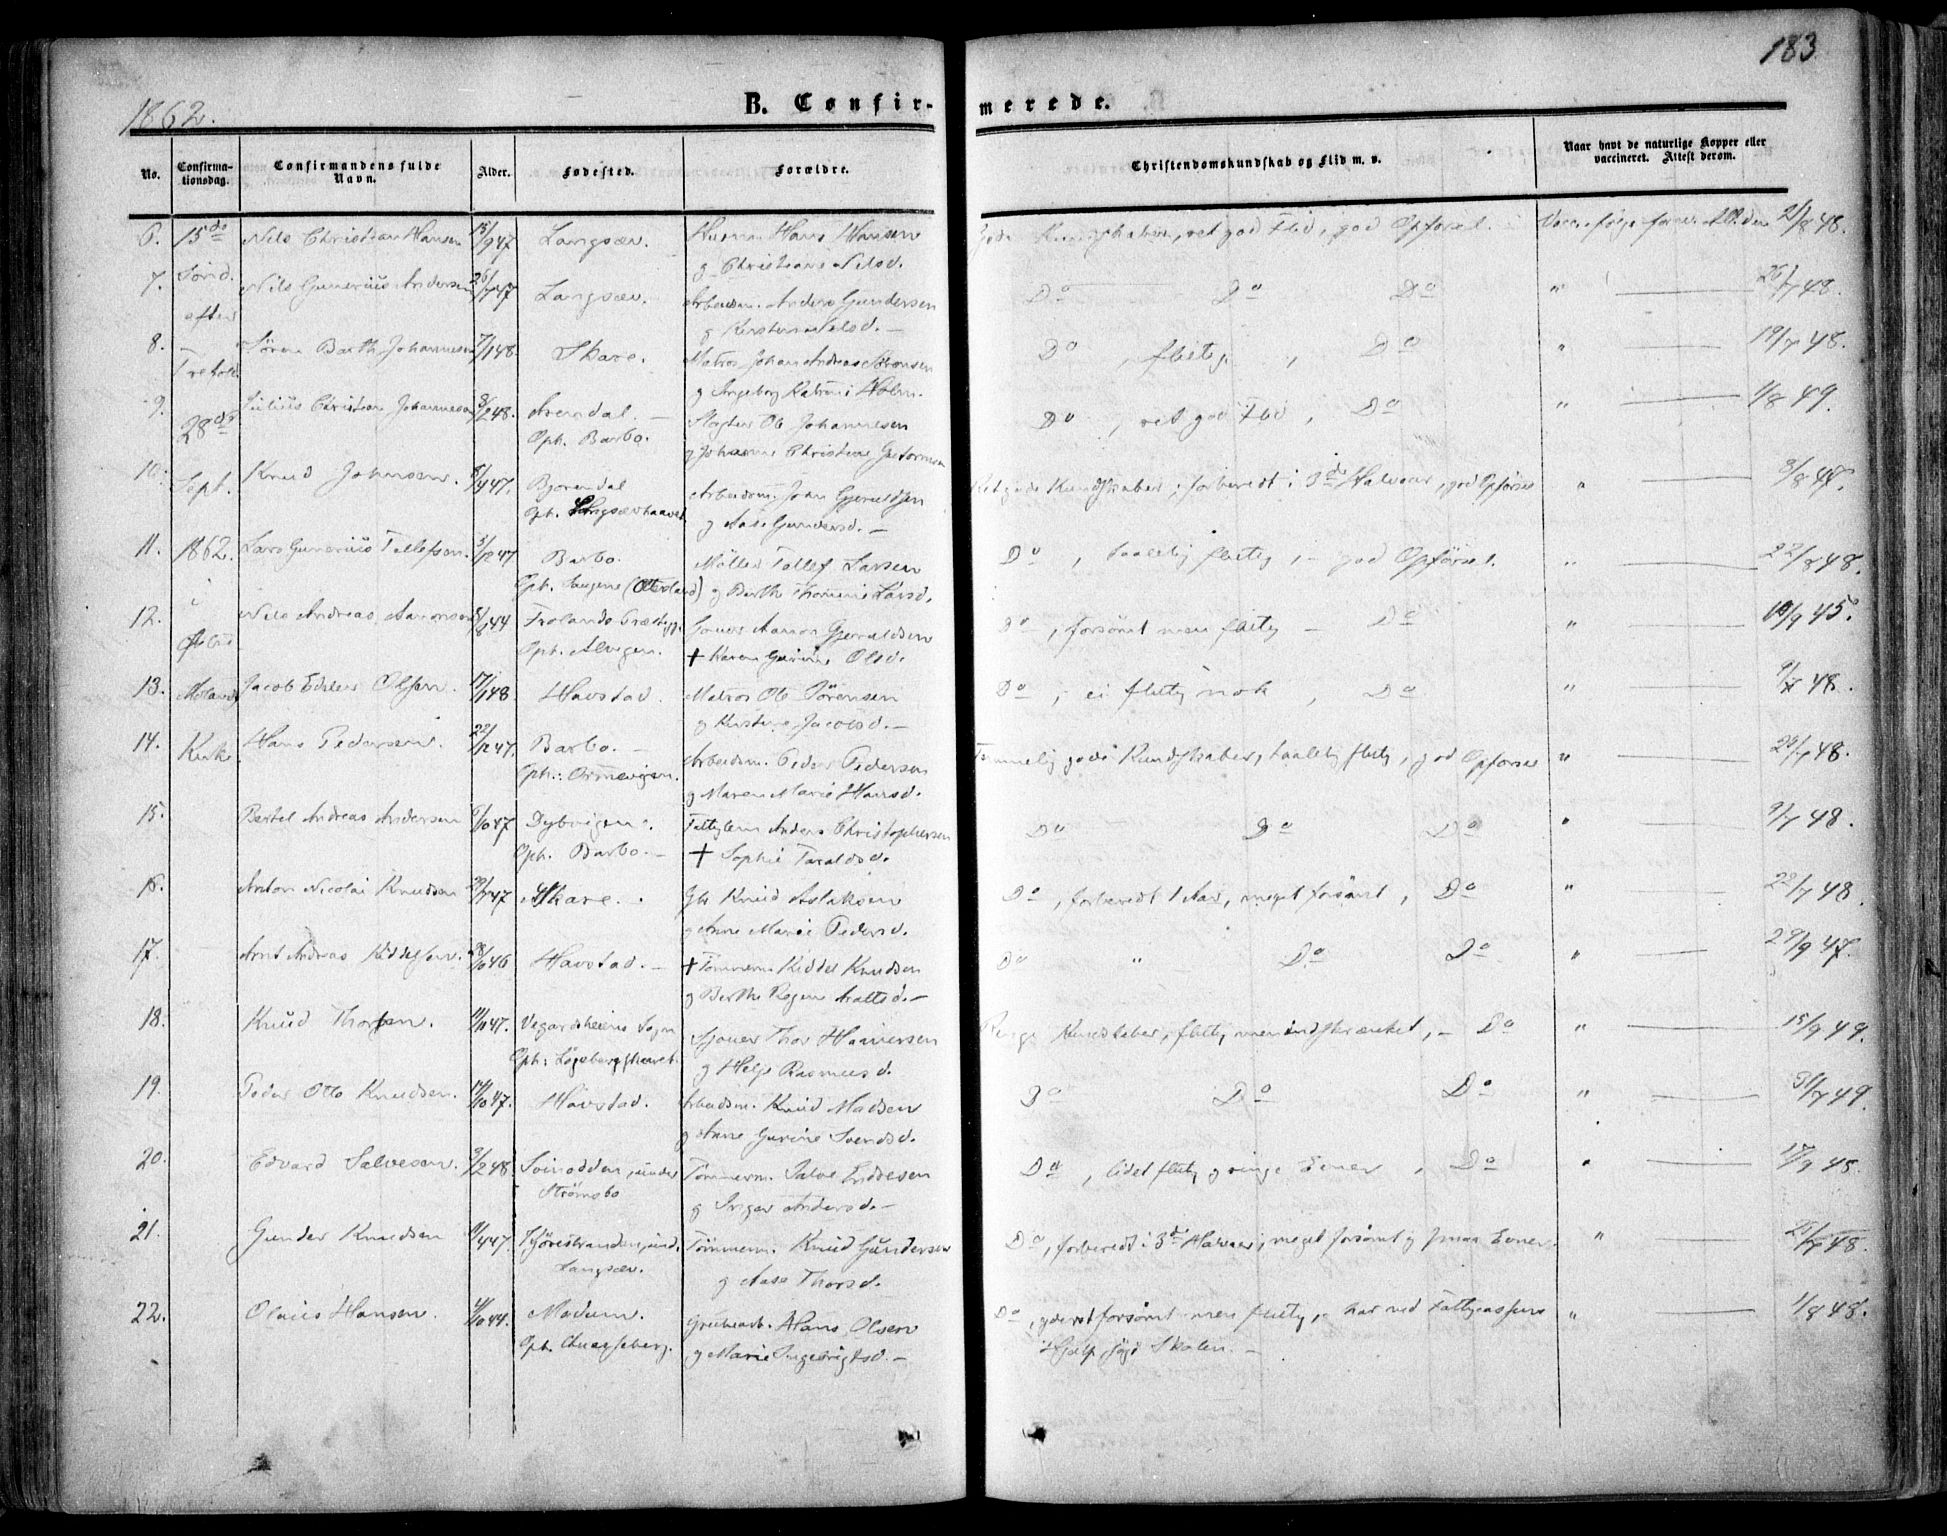 183
1862.
B. Confirmerede.
No.
Confirmationsdag.
Confirmandens fulde Navn.
Alder.
Fødested.
Forældre.
Christendomskundskab og Flid m. v.
Naar havt de naturlige Kopper eller vaccineret. Attest derom.
15de Sønd. efter Trefold. 28de Sept. 1862. i Østre Moland Kirke
6. Nils Christian Hansen 15/9 47 Langsæv. Husm. Hans Hansen
g Christiane Nilsd.
Gode Kundskaber, ret god Flid, god Opførsel. Vacc. ifølge Att. den 21/8 48.
7. Nils Gunerius Andersen 26/7 47 Langsæv. Arbeidsm. Anders Gundersen
g Kirsten Nilsd. –
Do Do Do " 26/7 48.
8. Søren Barth Johannesen 7/1 48. Skare. Matros Johan Andreas Sørensen
g Ingeborg Katrine Holm.
Do, flitig, Do " 19/7 48.
9. Julius Christian Johannesen 8/2 48. Arendal. –
Oph. Barbo.
Slagter Ole Johannesen
g Johanne Christine Guttormsen
Do, ret god Flid, Do " 1/8 49.
10. Knud Johnsen. 8/4 47. Bjorendal
Oph. Langsævhauvet
Arbeidsm. Joen Gjeruldsen
g Aase Gundersd. –
Ret gode Kundskaber, forberedt i 3de Halvaar, god Opførsel " 8/8 48.
11. Lars Gunerius Tellefsen. 5/12 47 Barbo.
Oph. Saugene (Otterland)
Møller Tellef Larsen
g Berthe Thomine Larsd.
Do, taalelig flitig, – god Opførsel. " 22/8 48.
12. Nils Andreas Aanonsen 8/8 44 Frolands Præstegj.
Oph. Alvigen.
Aanon Gjeruldsen
+ Karen Gurine Olsd.
Do, forsømt men flitig – Do " 10/9 45.
13. Jacob Edvler Olsen. 17/1 48 Havstad. Matros Ole Sørensen
g Kirstine Jacobsd. –
Do, ei flittig nok, Do " 48.
14. Hans Pedersen. 22/12 47. Barbo. –
Oph: Ormevigen.
Arbeidsm. Peder Pedersen
g Maren Marie Hansd.
Temmelig gode Kundskaber, taalelig flitig, god Opførsel " 26/7 48.
15. Bertel Andreas Andersen 6/10 47 Dybvigen.
Oph. Barbo. –
Fattiglem Anders Christophersen
+ Sophie Taraldsd.
Do Do Do " 9/7 48.
16. Anton Nicolai Knudsen 29/7 47 Skare. Gb. Knud Aslaksen
g Anne Marie Pedersd.
Do, forberedt 1 Aar, meget forsømt, Do " 22/7 48.
17. Arnt Andreas Kiddelsen. 28/10 46 Havstad. – + Tømmerm. Kiddel Knudsen
g Berthe Regine Aattsd. –
Do " Do Do " 29/9 47.
18. Knud Thorsen. 11/10 47. Vegardsheiens Sogn
Oph: Løgebergshauvet.
Thor Hansersen
g Helje Rasmusd.
Ringe Kundskaber, flitig men indskrænket, – Do " 15/9 49.
19. Peder Otto Knudsen. 14/10 47. Havstad. Arbeidsm. Knud Madsen
g Anne Gurine Svendsd.
Do Do Do " 31/7 49.
20. Edvard Salvesen. 9/2 48. Svinodden, under
Strømsbo
Tømmerm. Salve Endresen
g Inger Andersd. –
Do, lidet flitig g ringe Evner, Do " 17/9 48.
21. Gunder Knudsen 11/4 47. Kjørestranden, und.
Langsæv.
Tømmerm. Knud Gundersen
g Aase Thorsd.
Do, forberedt i 3de Halvaar, meget forsømt g smaa Evner. " 25/7 48.
22. Olaus Hansen. 4/10 44. Modum.
Oph.
Grubearb. Hans Olsen
g Marie Ingebrigtsd. –
Do, yderst forsømt men flitig, har ved Fattigcassens " 1/8 48.
Hjælp søgt Skolen. –